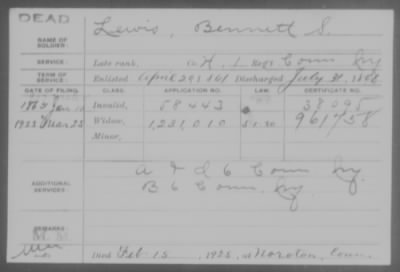 DEAD
NAME OF SOLDIER: Lewis, Bennett S.
SERVICE: Late rank, Co. H, 1 Reg't Conn Inf
TERM OF SERVICE: Enlisted April 29, 1861 Discharged July 31, 1861
DATE OF FILING. CLASS. APPLICATION NO. LAW. CERTIFICATE NO.
1865 Jan Invalid, 58443 38095
1925 Mar 25 Widow, 1,231,010 961758
Minor,
ADDITIONAL SERVICES: A & I 6 Conn Inf.
B 6 Conn. Inf.
REMARKS:
Died Feb. 15, 1925, at Noroton, Conn.